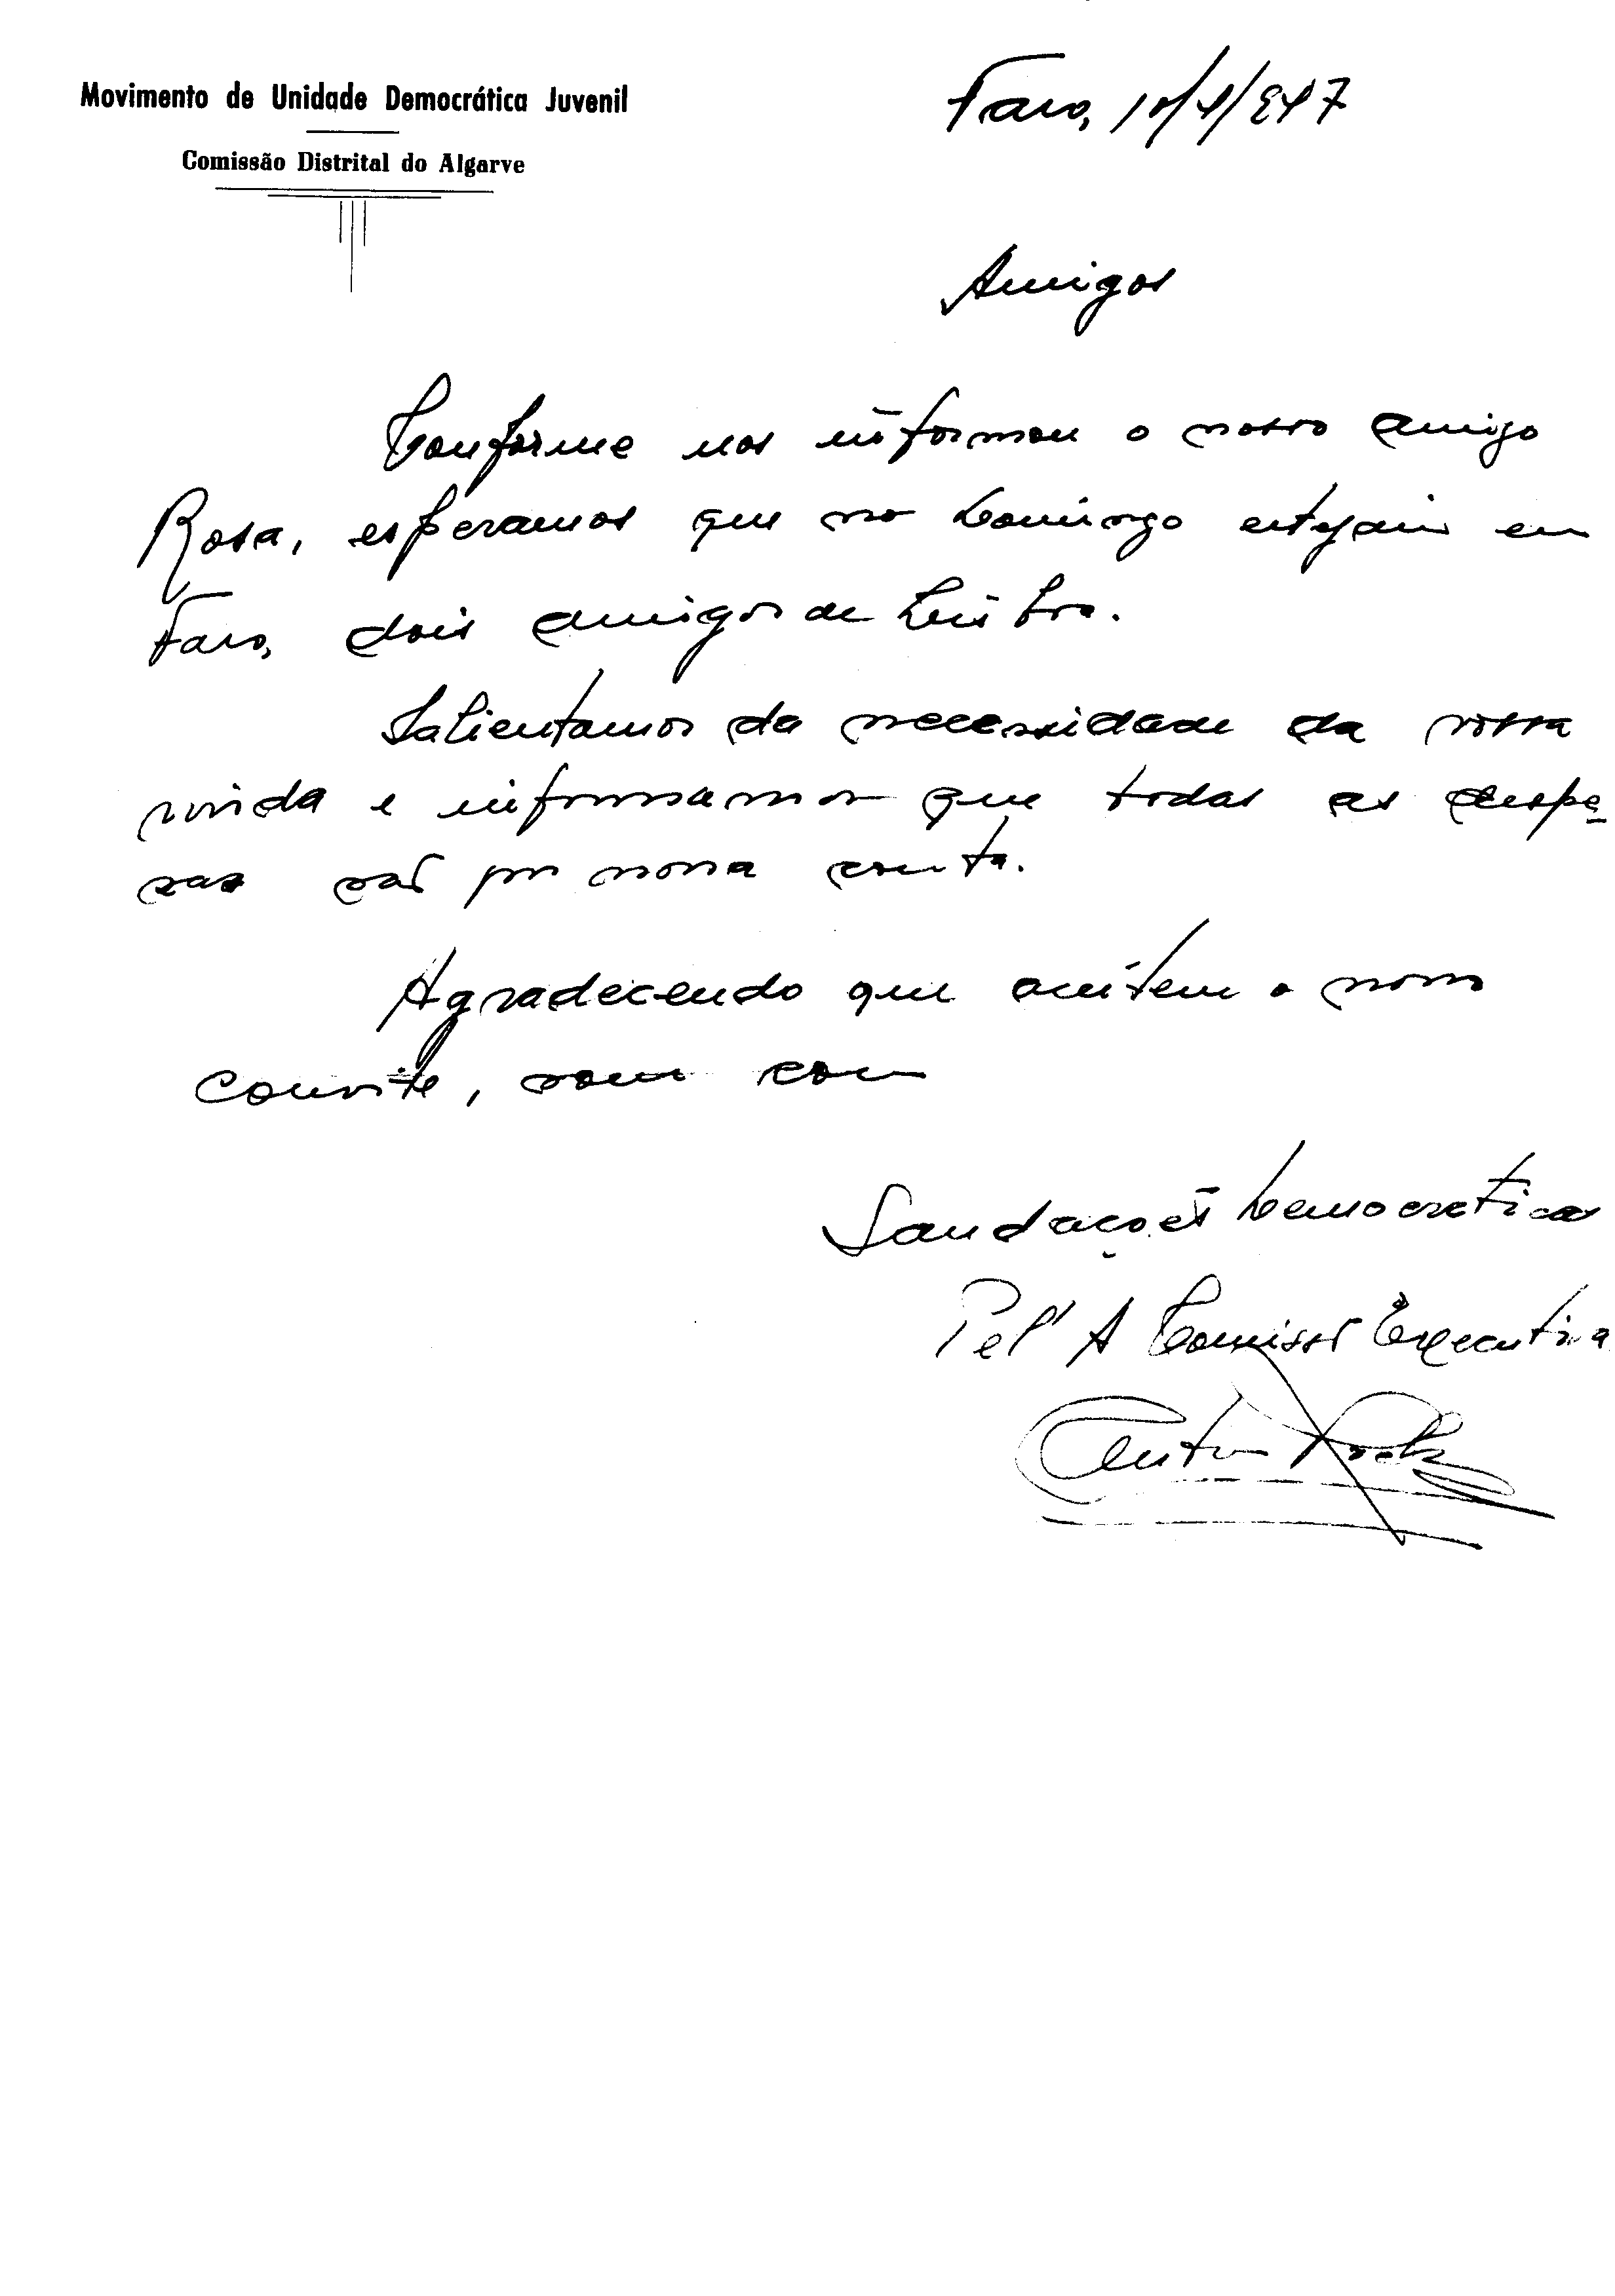 Movimento de Unidade Democrática Juvenil
Comissão Distrital do Algarve
Faro, 10/4/947
Amigos
Conforme nos informou o nosso amigo
Rosa, esperamos que no Domingo estejam em
Faro, dois amigos de Lisboa.
Salientamos da necessidade da vossa
vinda e informamos que todas as despe-
sas são por nossa conta.
Agradecendo que aceitem o nosso
convite, somos com
Saudações Democraticas
Pel' A Comissão Executiva